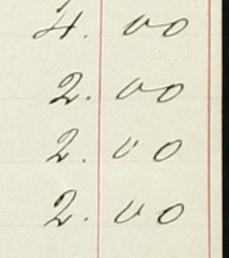 4. 00
2. 00
2. 00
2. 00